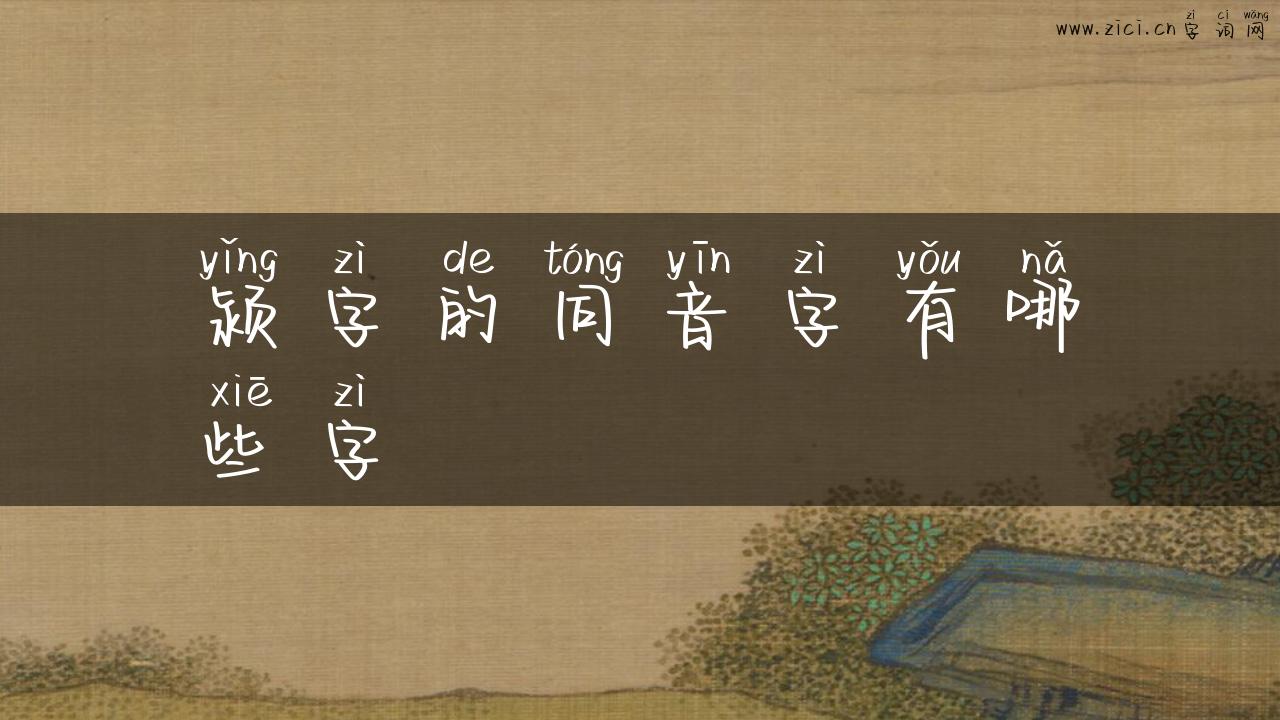 www.zici.cn 字词网
zì cí wǎng
yǐng zì de tóng yīn zì yǒu nǎ
颍字的同音字有哪
xiē zì
些字